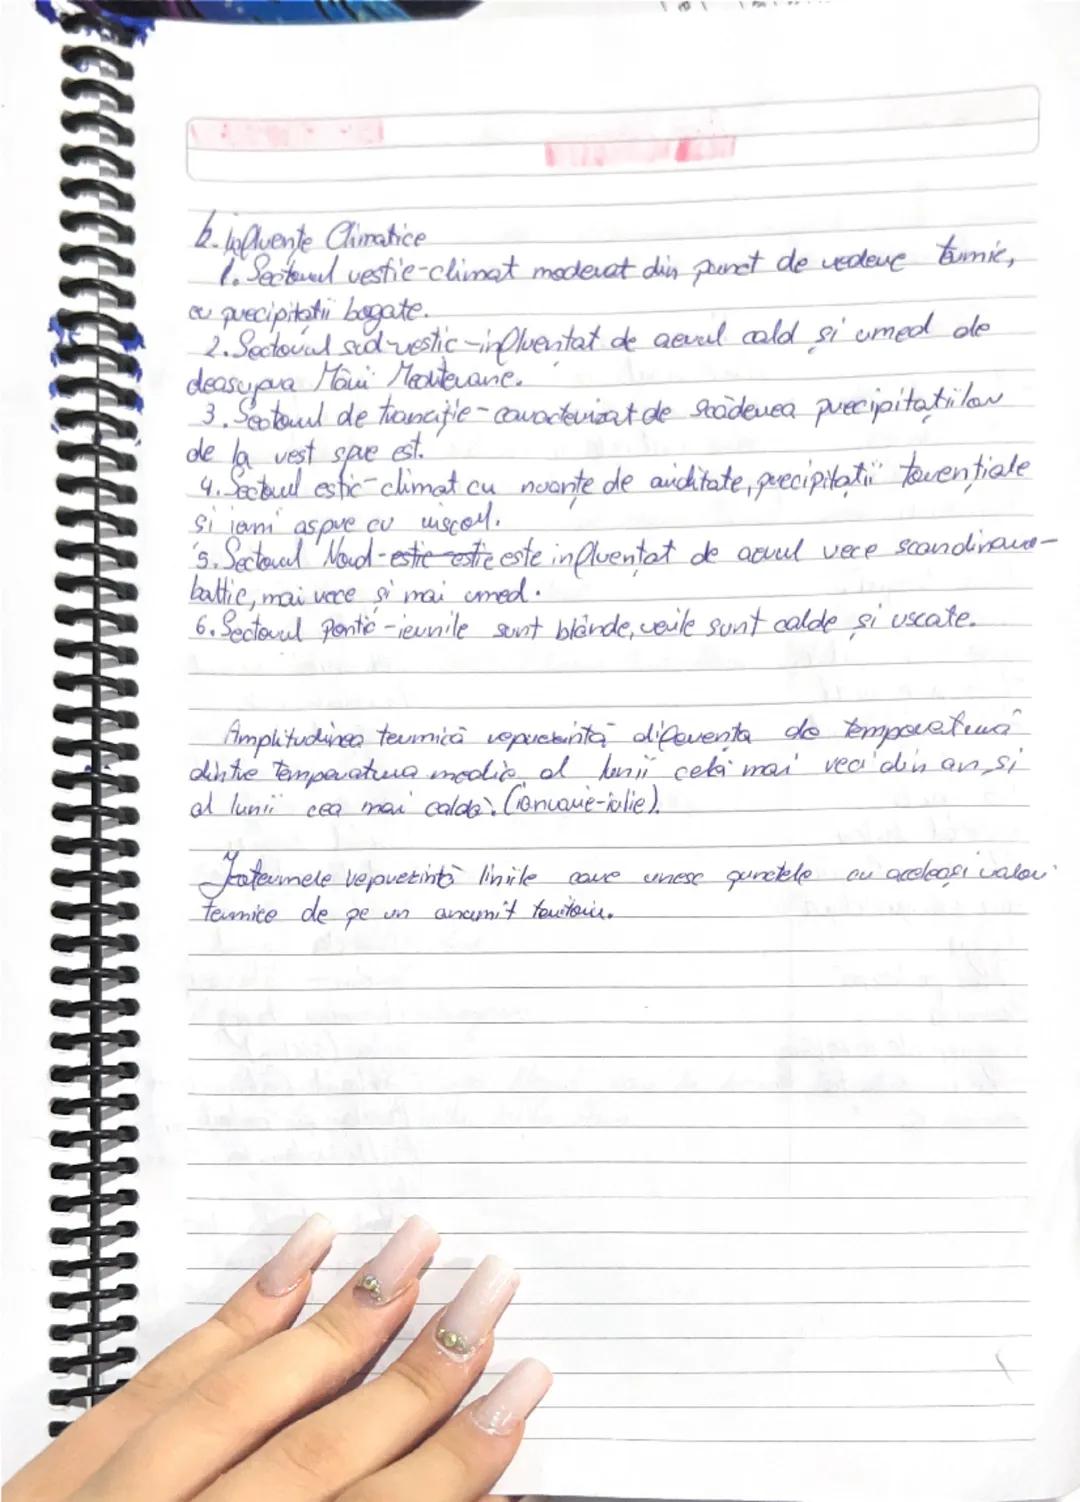 b. Influențe Climatice
1. Sectorul vestic-climat moderat din punct de vedere termic,
cu precipitatii bogate.
2. Sectorul sud-vestic-influentat de aerul cald și umed de
deasupra Mării Mediterane.
3. Sectorul de tranziție-caracterizat de scăderea precipitatiilor
de la vest spre est.
4. Sectorul estic-climat cu nuanțe de ariditate, precipitatii torențiale
și ierni aspre cu viscol.
5. Sectorul Nord-estic este influențat de aerul rece scandinavo-
baltic, mai rece și mai umed.
6. Sectorul pontic-iernile sunt blânde, verile sunt calde și uscate.
Amplitudinea termică reprezintă diferența de temperatură
dintre temperatura medie al lunii celă mai reci din an și
al lunii cea mai caldă. (ianuarie-iulie).
Izotermele reprezintă liniile care unesc punctele cu aceleași valori
termice de pe un anumit teritoriu.